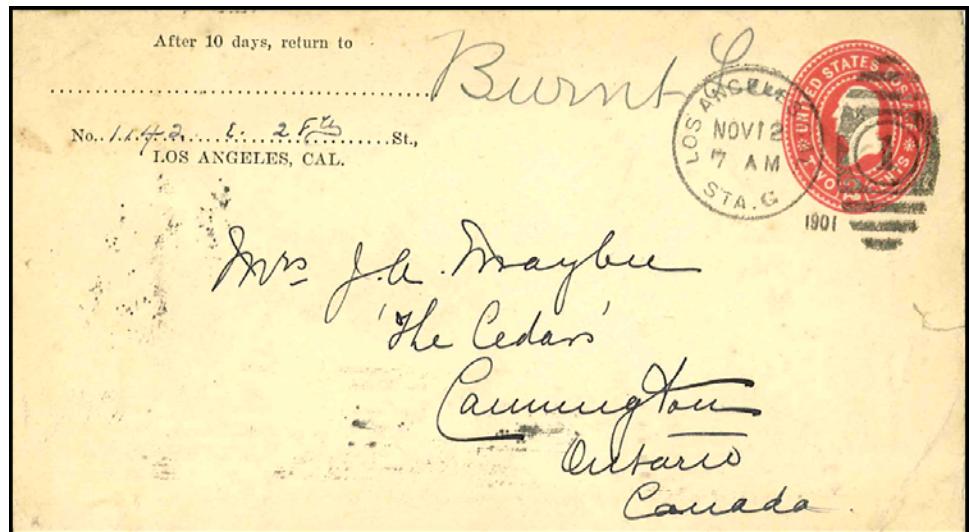 After 10 days, return to
Burnt
No. 1142 E. 28th St.,
LOS ANGELES, CAL.
LOS ANGELES
NOV 12
7 AM
STA. G
1901
UNITED STATES POSTAGE
TWO CENTS
1
Mrs J. A. Maybee
'The Cedars'
Cannington
Ontario
Canada